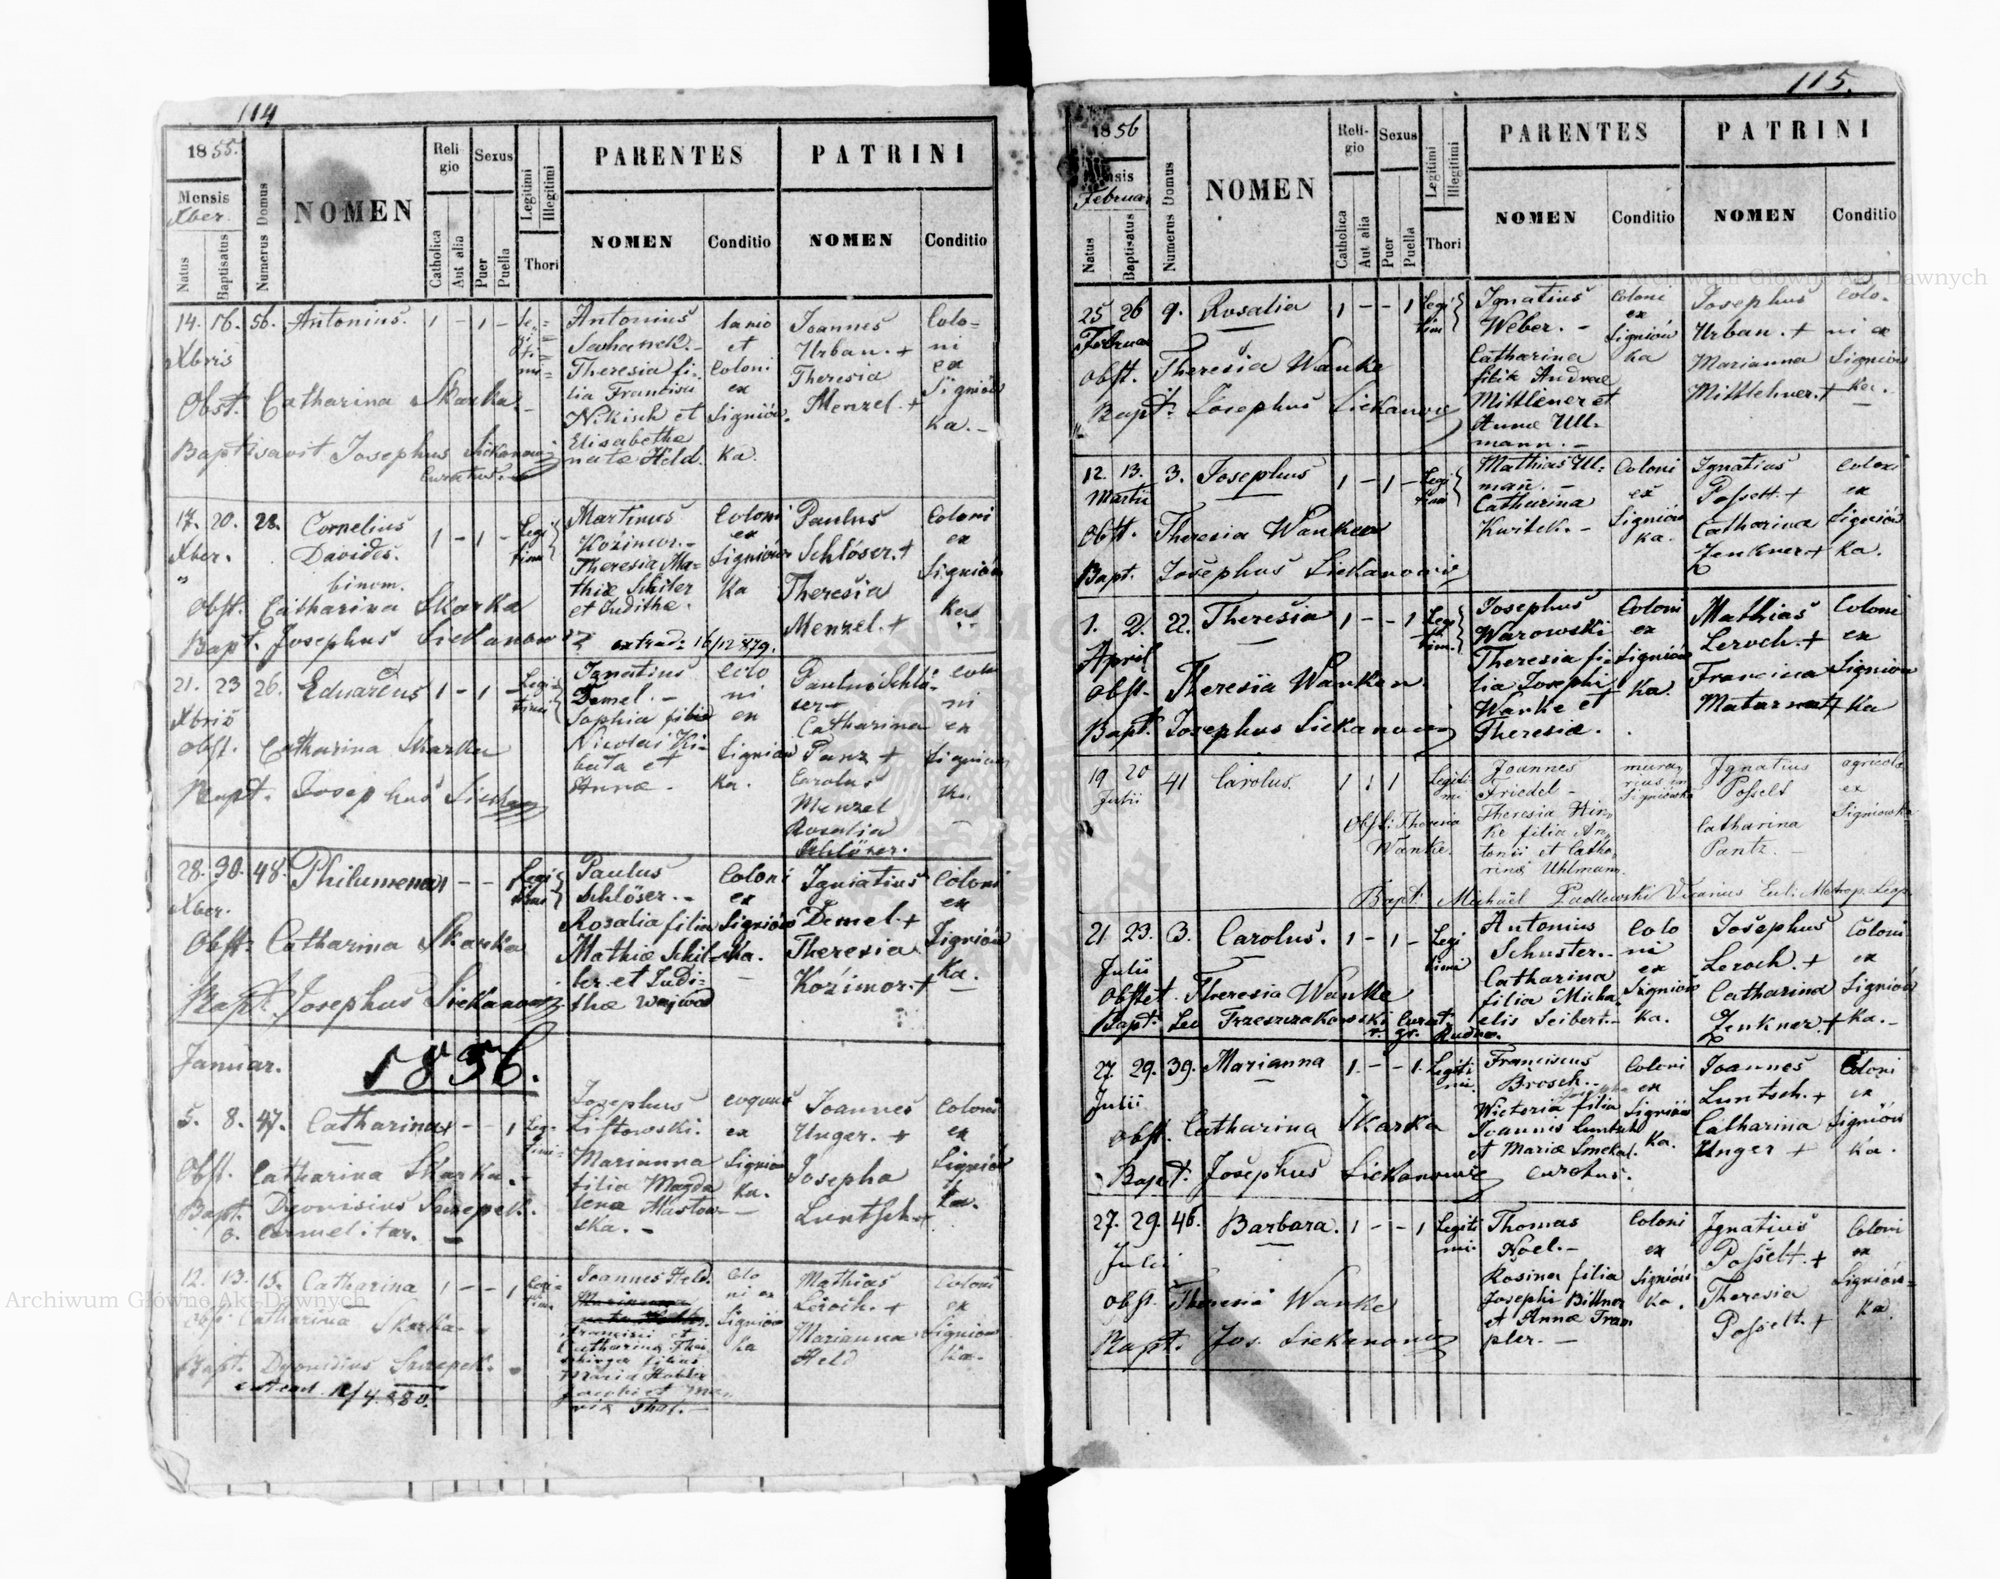 114
1855.
Mensis
Xber.
Natus
Baptisatus
Numerus Domus
NOMEN
Reli
gio
Catholica
Aut alia
Sexus
Puer
Puella
Legitimi
Illegitimi
Thori
PARENTES
NOMEN
Conditio
PATRINI
NOMEN
Conditio
14. 16. 56. Antonius. 1 - 1 -
Xbris
Antonius
Theresia fi-
lia Francisci
Nikisch et
Elisabethae
natae Held.
et
Coloni
ex
Signiów-
ka.
Joannes
Urban. +
Theresia
Menzel. +
Colo-
ni
ex
Signiów
ka. -
Obst. Catharina Skarka. -
Baptisavit Josephus Siekanowicz
Curatus.
17. 20. 28. Cornelius 1 - 1 - Legi
Xber. Davides. timi
" binom.
Martinus
Kożimor. -
Theresia Ma-
thiae Schiler
et Judithae.
Coloni
ex
Signiów
ka
Paulus
Schlöser. +
Theresia
Menzel. +
Coloni
ex
Signiów
ka
Obst. Catharina Skarka
Bapt. Josephus Siekanow
extrad: 16/12 879.
21. 23 26. Eduardus 1 - 1 - Legi
Xbris timi
Ignatius
Demel. -
Sophia filia
Nicolai Ki-
bata et
Annae -
Colo
ni
ex
Signiów
ka.
Paulus Schlö-
ser +
Catharina
Panz +
Carolus
Menzel
Rosalia
Schlöser.
Colo
ni
ex
Signiów
ka.
Obst. Catharina Skarka
Bapt. Josephus
28. 30. 48. Philumena 1 - - Legi
Xber. timi
Paulus
Schlöser. -
Rosalia filia
Mathiae Schil-
ler et Judi-
thae
Coloni
ex
Signiów
ka.
Ignatius
Demel. +
Theresia
Kożimor. +
Coloni
ex
Signiów
ka.
Obst. Catharina Skarka
Bapt. Josephus Siekanowicz
Januar. 1856.
5. 8. 47. Catharina 1 - - 1 Leg-
timi
Josephus
Listowski.
Marianna
filia Magda
lenae Mastow-
ska. -
coquus
ex
Signiów
ka.
Joannes
Unger. +
Josepha
Luntsch +
Coloni
ex
Signiów
ka.
Obst. Catharina Skarka. -
Bapt. Dyonisius Szczepek.
o. Carmelitar.
12. 13. 15. Catharina 1 - - 1 Legi-
timi
Joannes Held.
Francisci et
Catharina
filius
Maria
Jacobi et Ma-
ria Thal. -
Colo
ni ex
Signiów
ka
Mathias
Leroch. +
Marianna
Held
Coloni
ex
Signiów
ka.
Obst. Catharina Skarka.
Bapt. Dyonisius Szczepek.
extrad. 12/4 880.
115.
1856
Mensis
Februar
Natus
Baptisatus
Numerus Domus
NOMEN
Reli-
gio
Catholica
Aut alia
Sexus
Puer
Puella
Legitimi
Illegitimi
Thori
PARENTES
NOMEN
Conditio
PATRINI
NOMEN
Conditio
25 26 9. Rosalia 1 - - 1 Legi
Februar timi
Ignatius
Weber. -
Catharina
filia Andreae
Mittlener et
Annae Ull-
mann. -
Coloni
ex
Signiów
ka
Josephus
Urban. +
Marianna
Mittlehner. +
Colo-
ni ex
Signiów
ka.
Obst. Theresia Wanke
Bapt. Josephus Siekanowicz
12. 13. 3. Josephus 1 - 1 - Legi
Martii timi
Mathias Ul-
man. -
Catharina
Kwitek. -
Coloni
ex
Signiów
ka.
Ignatius
Posselt. +
Catharina
Zenkner +
Coloni
ex
Signiów
ka.
Obst. Theresia Wanken
Bapt. Josephus Siekanowicz
1. 2. 22. Theresia 1 - - 1 Legi
April tim.
Josephus
Warowski
Theresia fi-
lia Josephi
Wanke et
Theresiae.
Coloni
ex
Signiów
ka.
Mathias
Leroch. +
Francisca
Coloni
ex
Signiów
ka
Obst. Theresia Wanken.
Bapt. Josephus Siekanowicz
19 20 41 Carolus. 1 1 Legiti-
Julii mi
Joannes
Friedel -
Theresia Hir-
ke filia An-
tonii et Catha-
rina Uhlmann.
mura-
rius in
Signiówka
Ignatius
Posselt
Catharina
Pantz. -
agricola
ex
Signiówka
Obst: Theresia
Wanke.
Bapt. Michaël Padlewski Vicarius Eccl. Metrop. Leop.
21 23. 3. Carolus. 1 - 1 - Legi
Julii timi
Antonius
Schuster. -
Catharina
filia Micha
elis Seibert. -
Colo
ni
ex
Signiów
ka.
Josephus
Leroch. +
Catharina
Zenkner. +
Coloni
ex
Signiów
ka. -
Obstet. Theresia Wanke
Bapt. Leo Trzeszczakowski Curat.
r. gr. Rudno.
27. 29. 39. Marianna 1. - - 1. Legiti
Julii mi.
Franciscus
Brosch. -
Josepha
Wictoria filia
Joannis Luntsch
et Mariae Smekal.
Coloni
ex
Signiów
ka.
Joannes
Luntsch. +
Catharina
Unger +
Coloni
ex
Signiów
ka.
Obst. Catharina Skarka
Bapt. Josephus Siekanowicz curatus.
27. 29. 46. Barbara. 1 - - 1 Legiti
Julii mi.
Thomas
Noel. -
Rosina filia
Josephi Bittner
et Annae Tram
pler. -
Coloni
ex
Signiów
ka.
Ignatius
Posselt. +
Theresia
Posselt. +
Coloni
ex
Signiów-
ka.
Obst. Theresia Wanke
Bapt. Jos. Siekanowicz
Archiwum Główne Akt Dawnych
Archiwum Główne Akt Dawnych